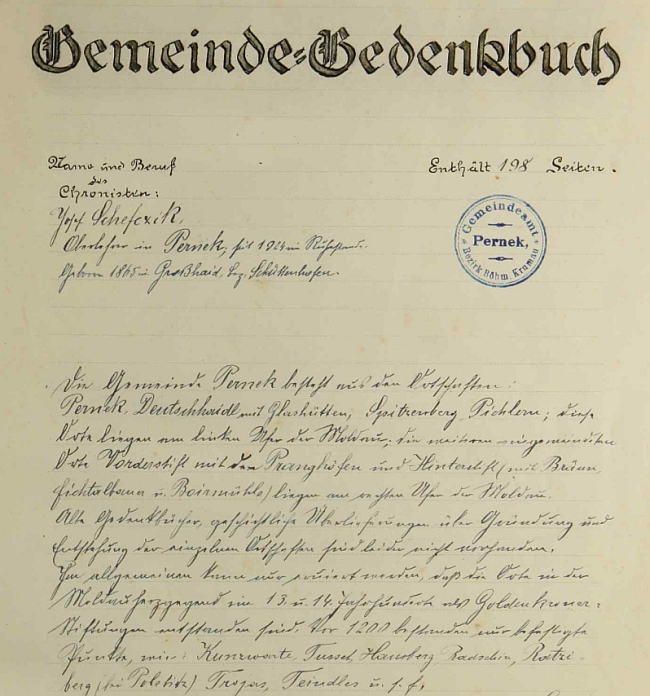 Gemeinde-Gedenkbuch
Name und Beruf
des
Chronisten:
Enthält 198 Seiten.
Josef Schefczik,
Oberlehrer in Pernek, seit 1924 im Ruhestand.
Geboren 1865 in Großhaid, Bez. Schüttenhofen.
Gemeindeamt
Pernek,
Bezirk Böhm. Krumau
Die Gemeinde Pernek besteht aus den Ortschaften:
Pernek, Deutschhaidl mit Glashütten, Spitzenberg, Pichlern; diese
Orte liegen am linken Ufer der Moldau; die weiteren eingemeindeten
Orte Vorderstift mit den Pranghöfen und Hinterstift (mit
u. ) liegen am rechten Ufer der Moldau.
Alte Gedenkbücher, geschichtliche Überlieferungen über Gründung und
Entstehung der einzelnen Ortschaften sind leider nicht vorhanden.
Im allgemeinen kann nur eruiert werden, daß die Orte in der
Moldauherzgegend im 13. u. 14. Jahrhunderte als Goldenkroner-
Stiftungen entstanden sind. Vor 1200 bestanden nur befestigte
Punkte, wie: Kunzwarte, Tusset, Hausberg, Radschin, Ratzi-
berg (bei Polschitz) Trojas, Teindles u. s. f.